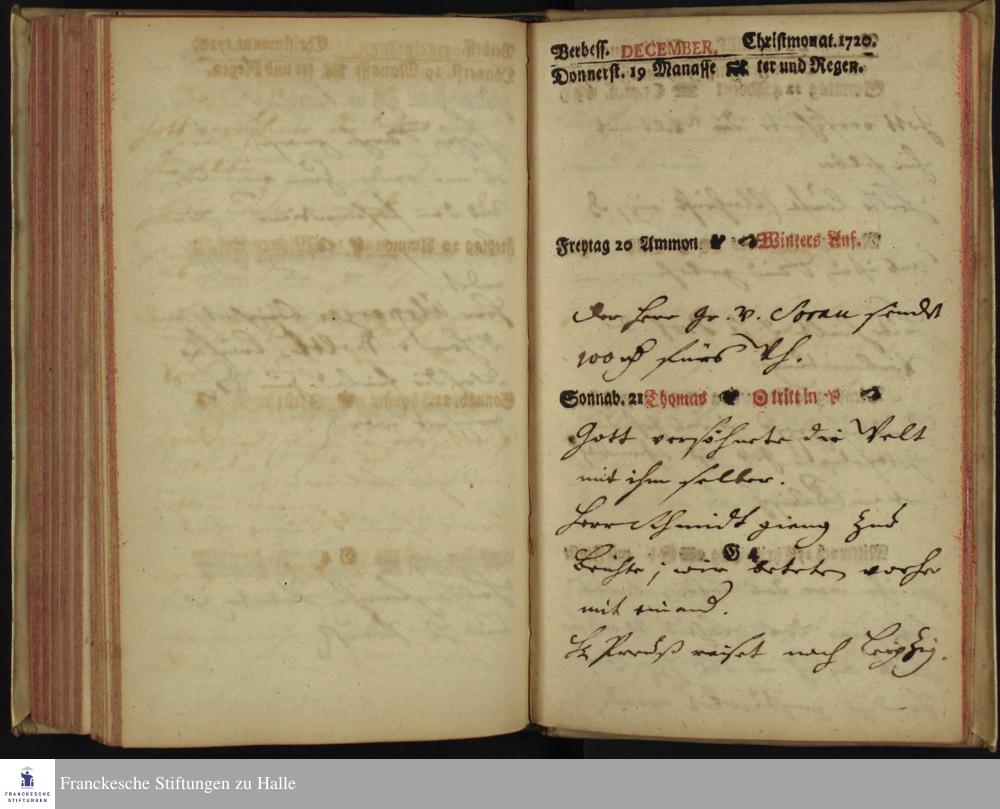 Verbess. DECEMBER. Christmonat. 1720.
Donnerst. 19 Manasse ter und Regen.
Freytag 20 Ammon Winters Anf.
Der Herr Gr. v. Sorau sendet
100 fürs
Sonnab. 21 Thomas ☉ tritt in
Gott versöhnete die Welt
mit ihm selber.
Herr Schmidt gieng zur
G 4
Beichte; wir beteten vorher
mit einand.
Preuß reiset nach Leipzig.
Franckesche Stiftungen zu Halle
FRANCKESCHE
STIFTUNGEN